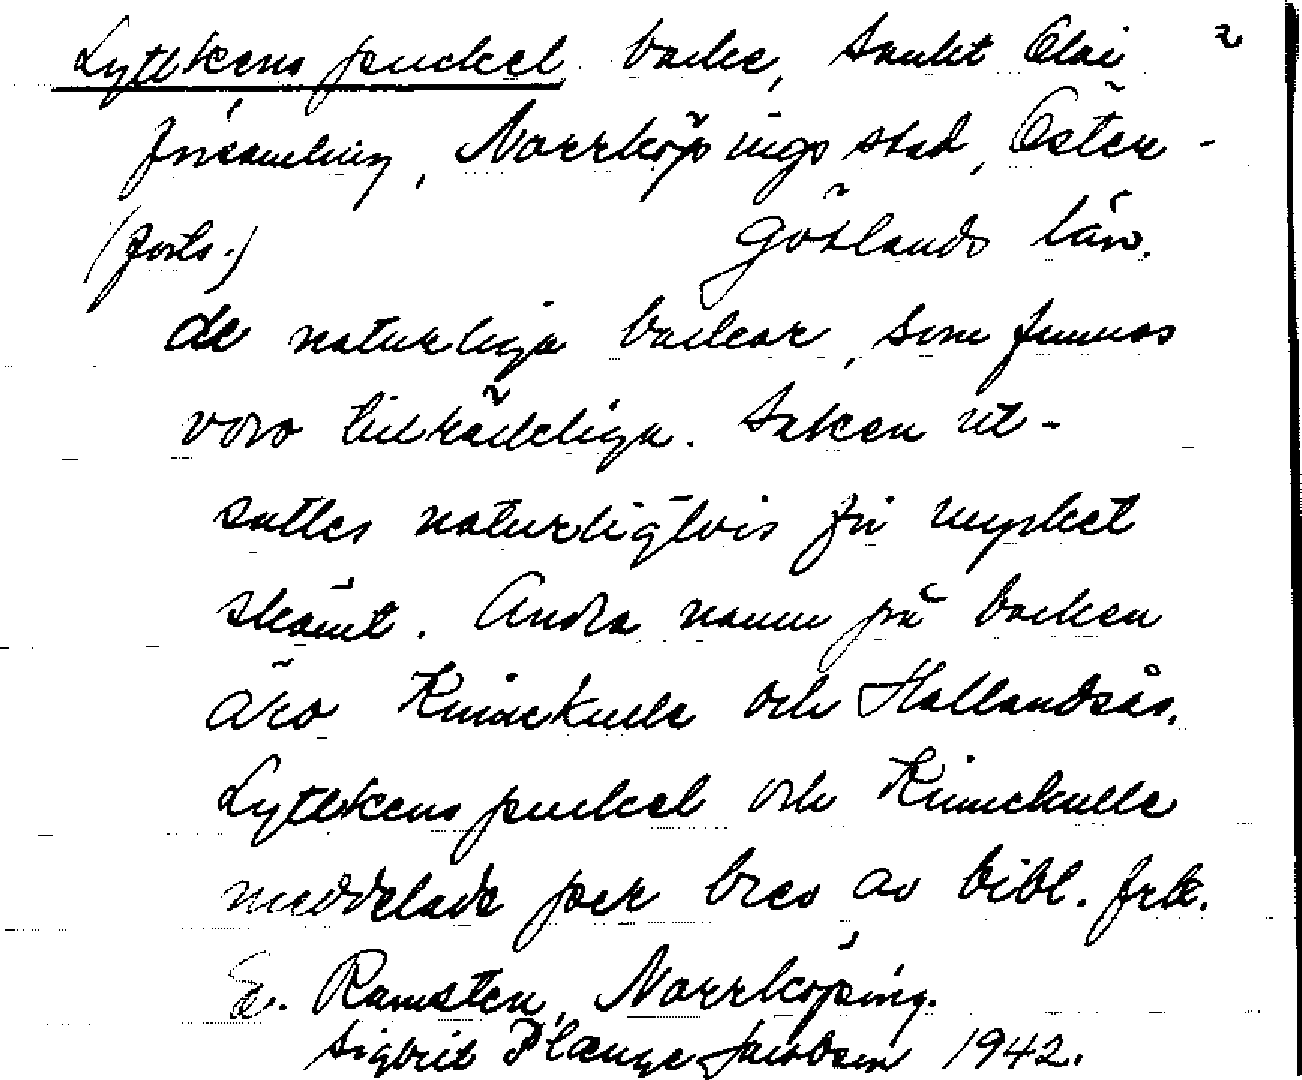 Lyttkens puckel. backe, Sankt Olai 2
församling, Norrköpings stad, Öster-
(forts.) götlands län.
de naturliga backar, som funnos
voro tillräckliga. Saken ut-
sattes naturligtvis för mycket
skämt. Andra namn på backen
äro Kinnekulle och Hallandsås.
Lyttkens puckel och Kinnekulle
meddelade per brev av bibl. frk.
E. Ramsten, Norrköping.
Sigbrit Plænge Jacobson 1942.